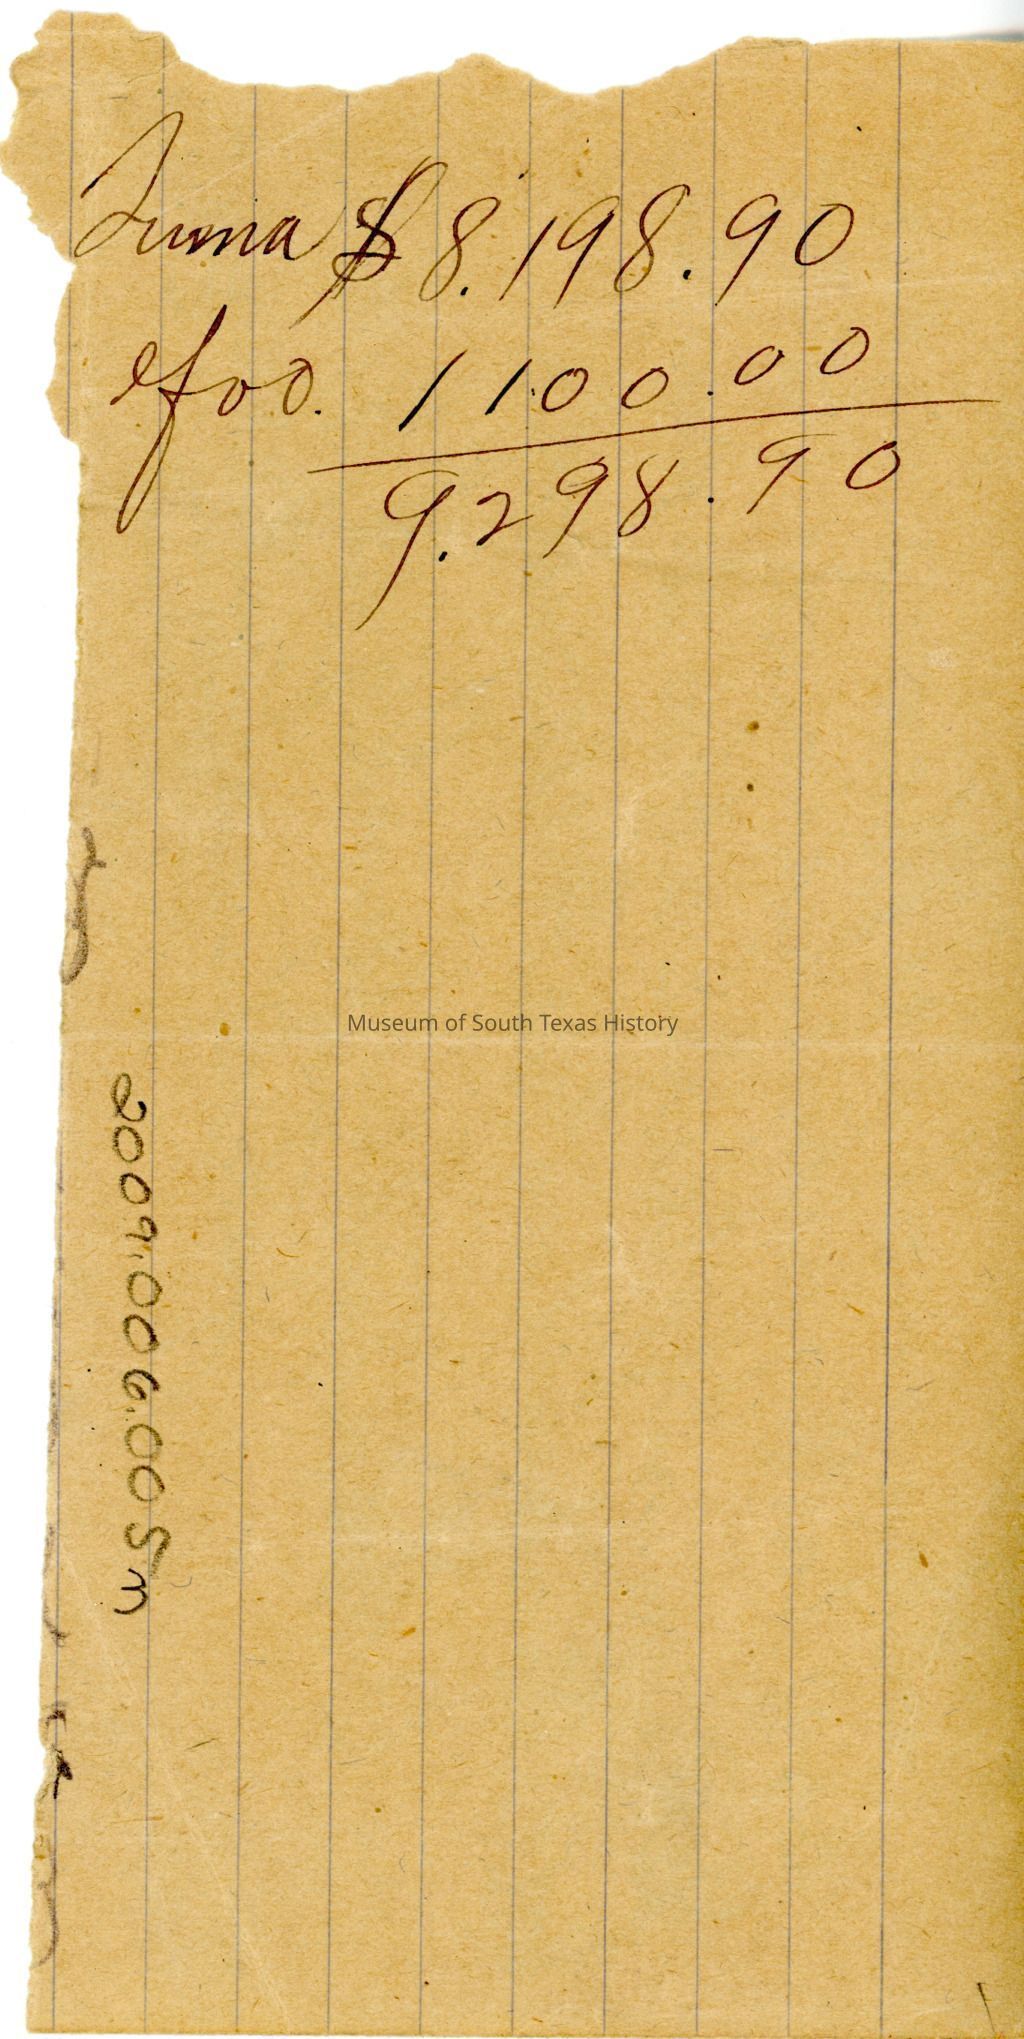 Suma $8.198.90
efvo. 1100.00
9.298.90
Museum of South Texas History
2009.006.005m